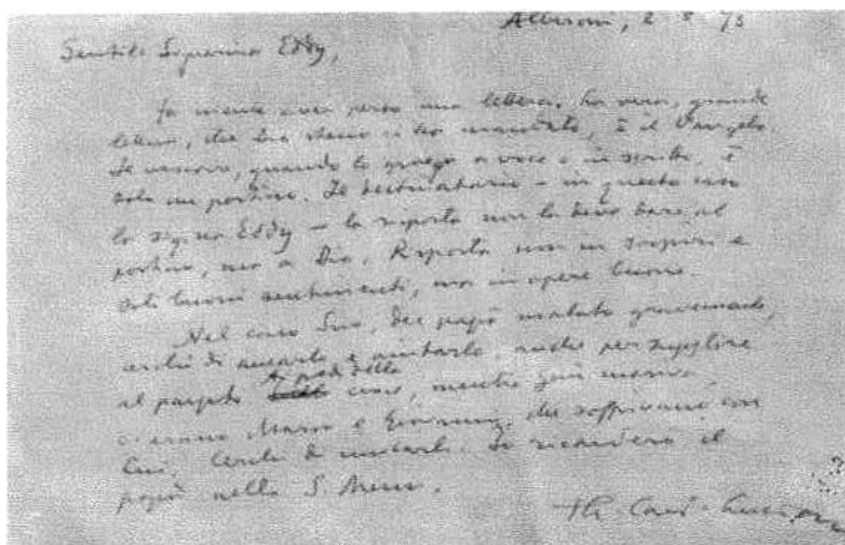 Alberoni, 2-8-73
Gentile Signorina Eddy,
fa niente aver perso una lettera. La vera, grande
lettera, che Dio stesso ci ha mandato, è il Vangelo.
Il vescovo, quando lo spiega a voce o in scritto, è
solo un postino. Il destinatario - in questo caso
la sig.na Eddy - la risposta non la deve dare al
postino, ma a Dio. Risposta non in sospiri e
soli buoni sentimenti, ma in opere buone.
Nel caso Suo, del papà malato gravemente,
cerchi di amarlo e aiutarlo, anche per
ai piedi della
al croce, mentre Gesù moriva,
c'erano Maria e Giovanni, che soffrivano con
Lui. Cerchi di imitarli. Io ricorderò il
papà nella S. Messa.